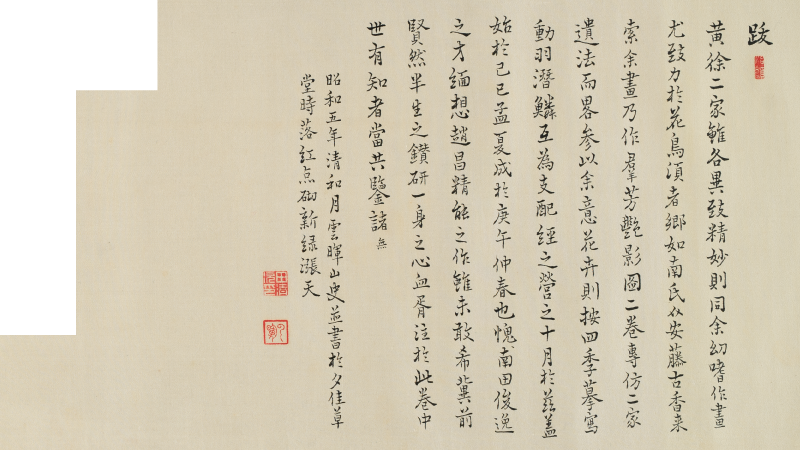 跋
黃徐二家雖各異致精妙則同余幼嗜作畫
尤致力於花鳥湏者鄉如南氏從安藤古香来
索余畫乃作羣芳艷影圖二卷專仿二家
遺法而畧参以余意花卉則按四季摹寫
動羽潛鱗互為支配經之營之十月於茲蓋
始於己巳孟夏成於庚午仲春也愧甫田俊逸
之才緬想趙昌精能之作雖未敢希冀前
賢然半生之鑽研一身之心血胥注於此卷中
世有知者當共鑒諸無
昭和五年清和月雲暉山史並書於夕佳草
堂時落紅点砌新緑漲天